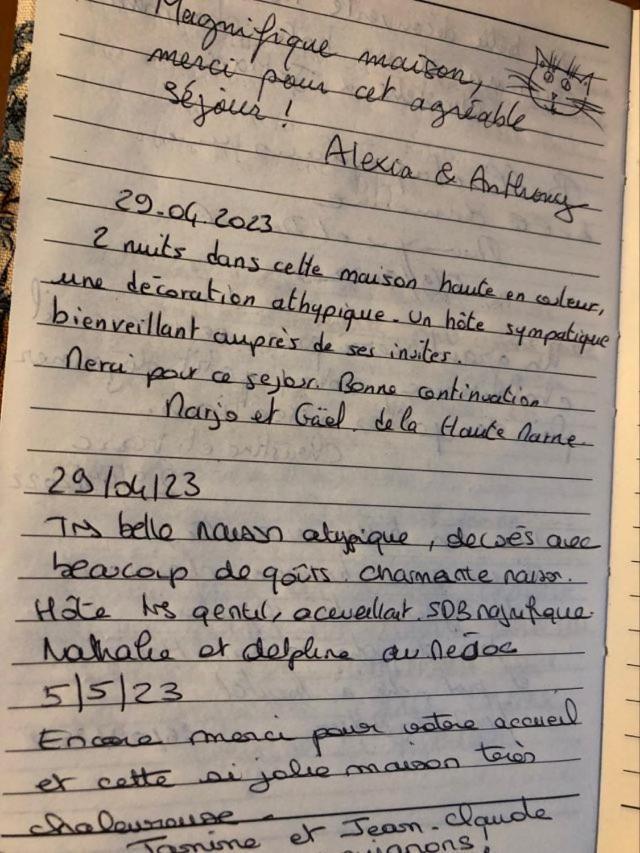 Magnifique maison,
merci pour cet agréable
séjour !
Alexia & Anthony
29.04.2023
2 nuits dans cette maison haute en couleur,
une décoration athypique. Un hôte sympatique
bienveillant auprès de ses invites.
Merci pour ce sejour. Bonne continuation
Marjo et Gäel. de la Haute Marne
29/04/23
Très belle maison atypique, decorés avec
beaucoup de goûts. charmante maison.
Hôte très gentil, acceuillant. SDB magnifique.
Nathalie et delphine du Médoc
5/5/23
Encore merci pour votre accueil
et cette si jolie maison très
chaleureuse.
et Jean-Claude